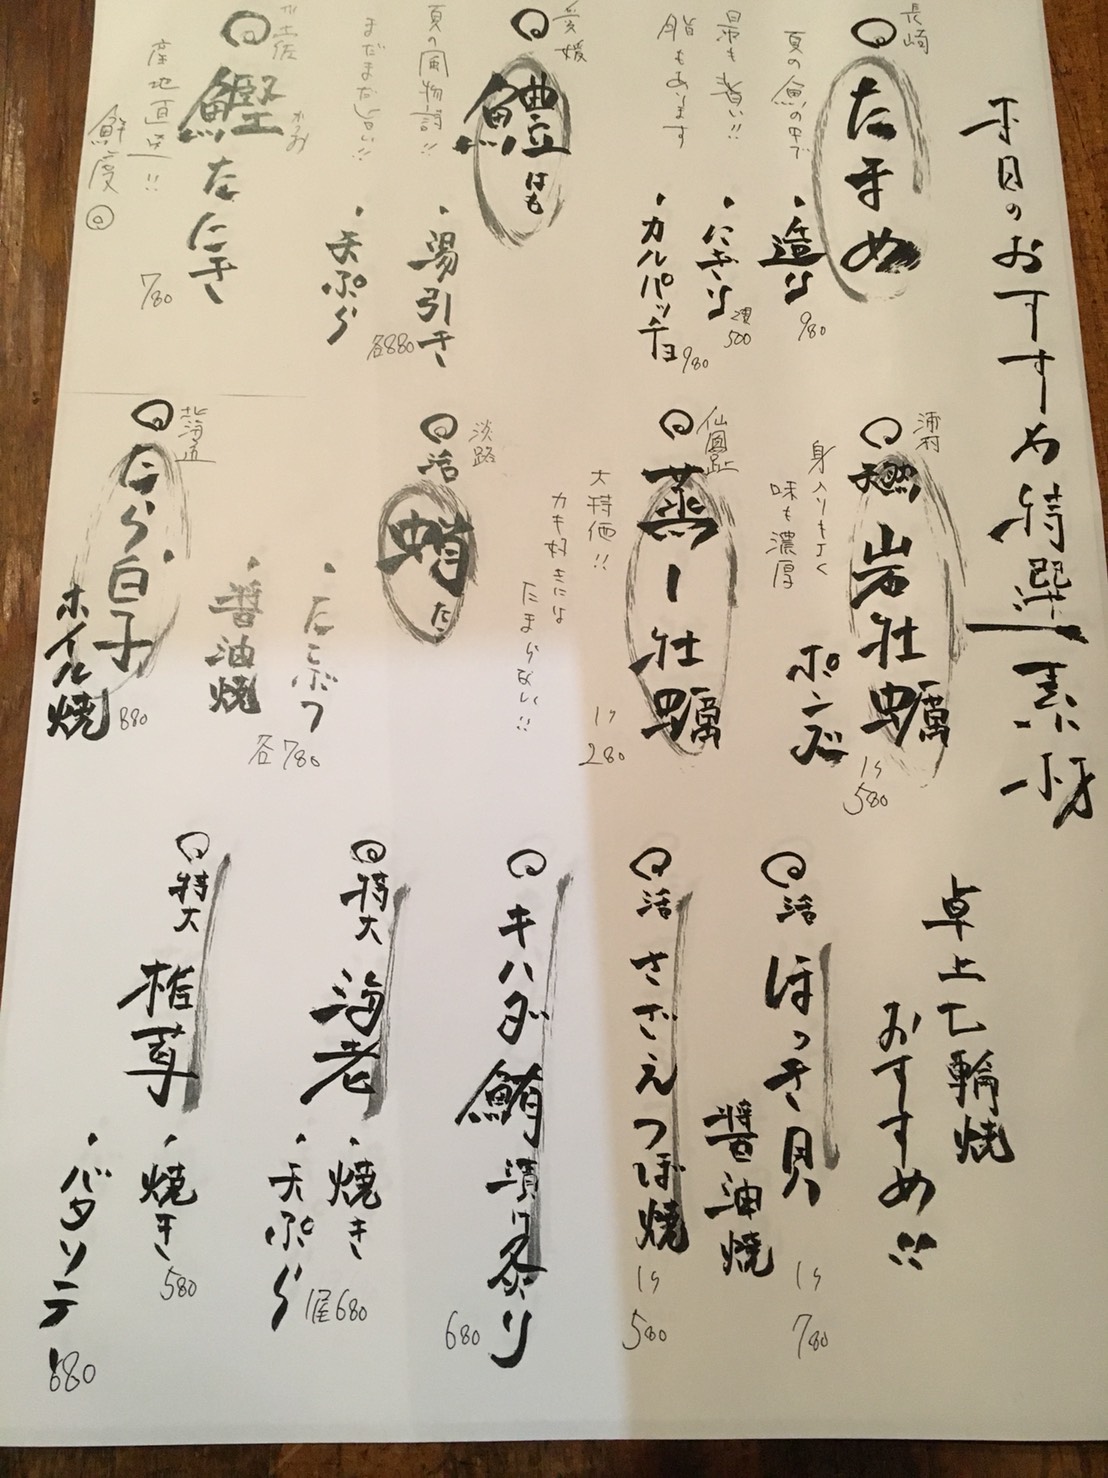 本日のおすすめ特選素材
長崎
たまめ
夏の魚の中で
最も旨い!!
脂もあります
・造り 980
・にぎり 2貫 500
・カルパッチョ 980
愛媛
鱧 はも
夏の風物詩!!
まだまだ旨い!!
・湯引き
・天ぷら
各880
土佐
鰹たたき
かつお
産地直送!!
鮮度◎
780
浦村
天然岩牡蠣
身入りもよく
味も濃厚
ポンズ
1ヶ 580
仙鳳趾
蒸し牡蠣
大特価!!
カキ好きには
たまらない!!
1ヶ 280
淡路
活蛸 たこ
・たこぶつ
・醤油焼
各780
北海道
たら白子
ホイル焼
880
卓上七輪焼
おすすめ!!
活ほっき貝
醤油焼
1ヶ 780
活さざえつぼ焼
1ヶ 580
キハダ鮪漬け炙り
680
特大海老
・焼き
・天ぷら
1尾680
特大椎茸
・焼き
580
・バタソテ
680